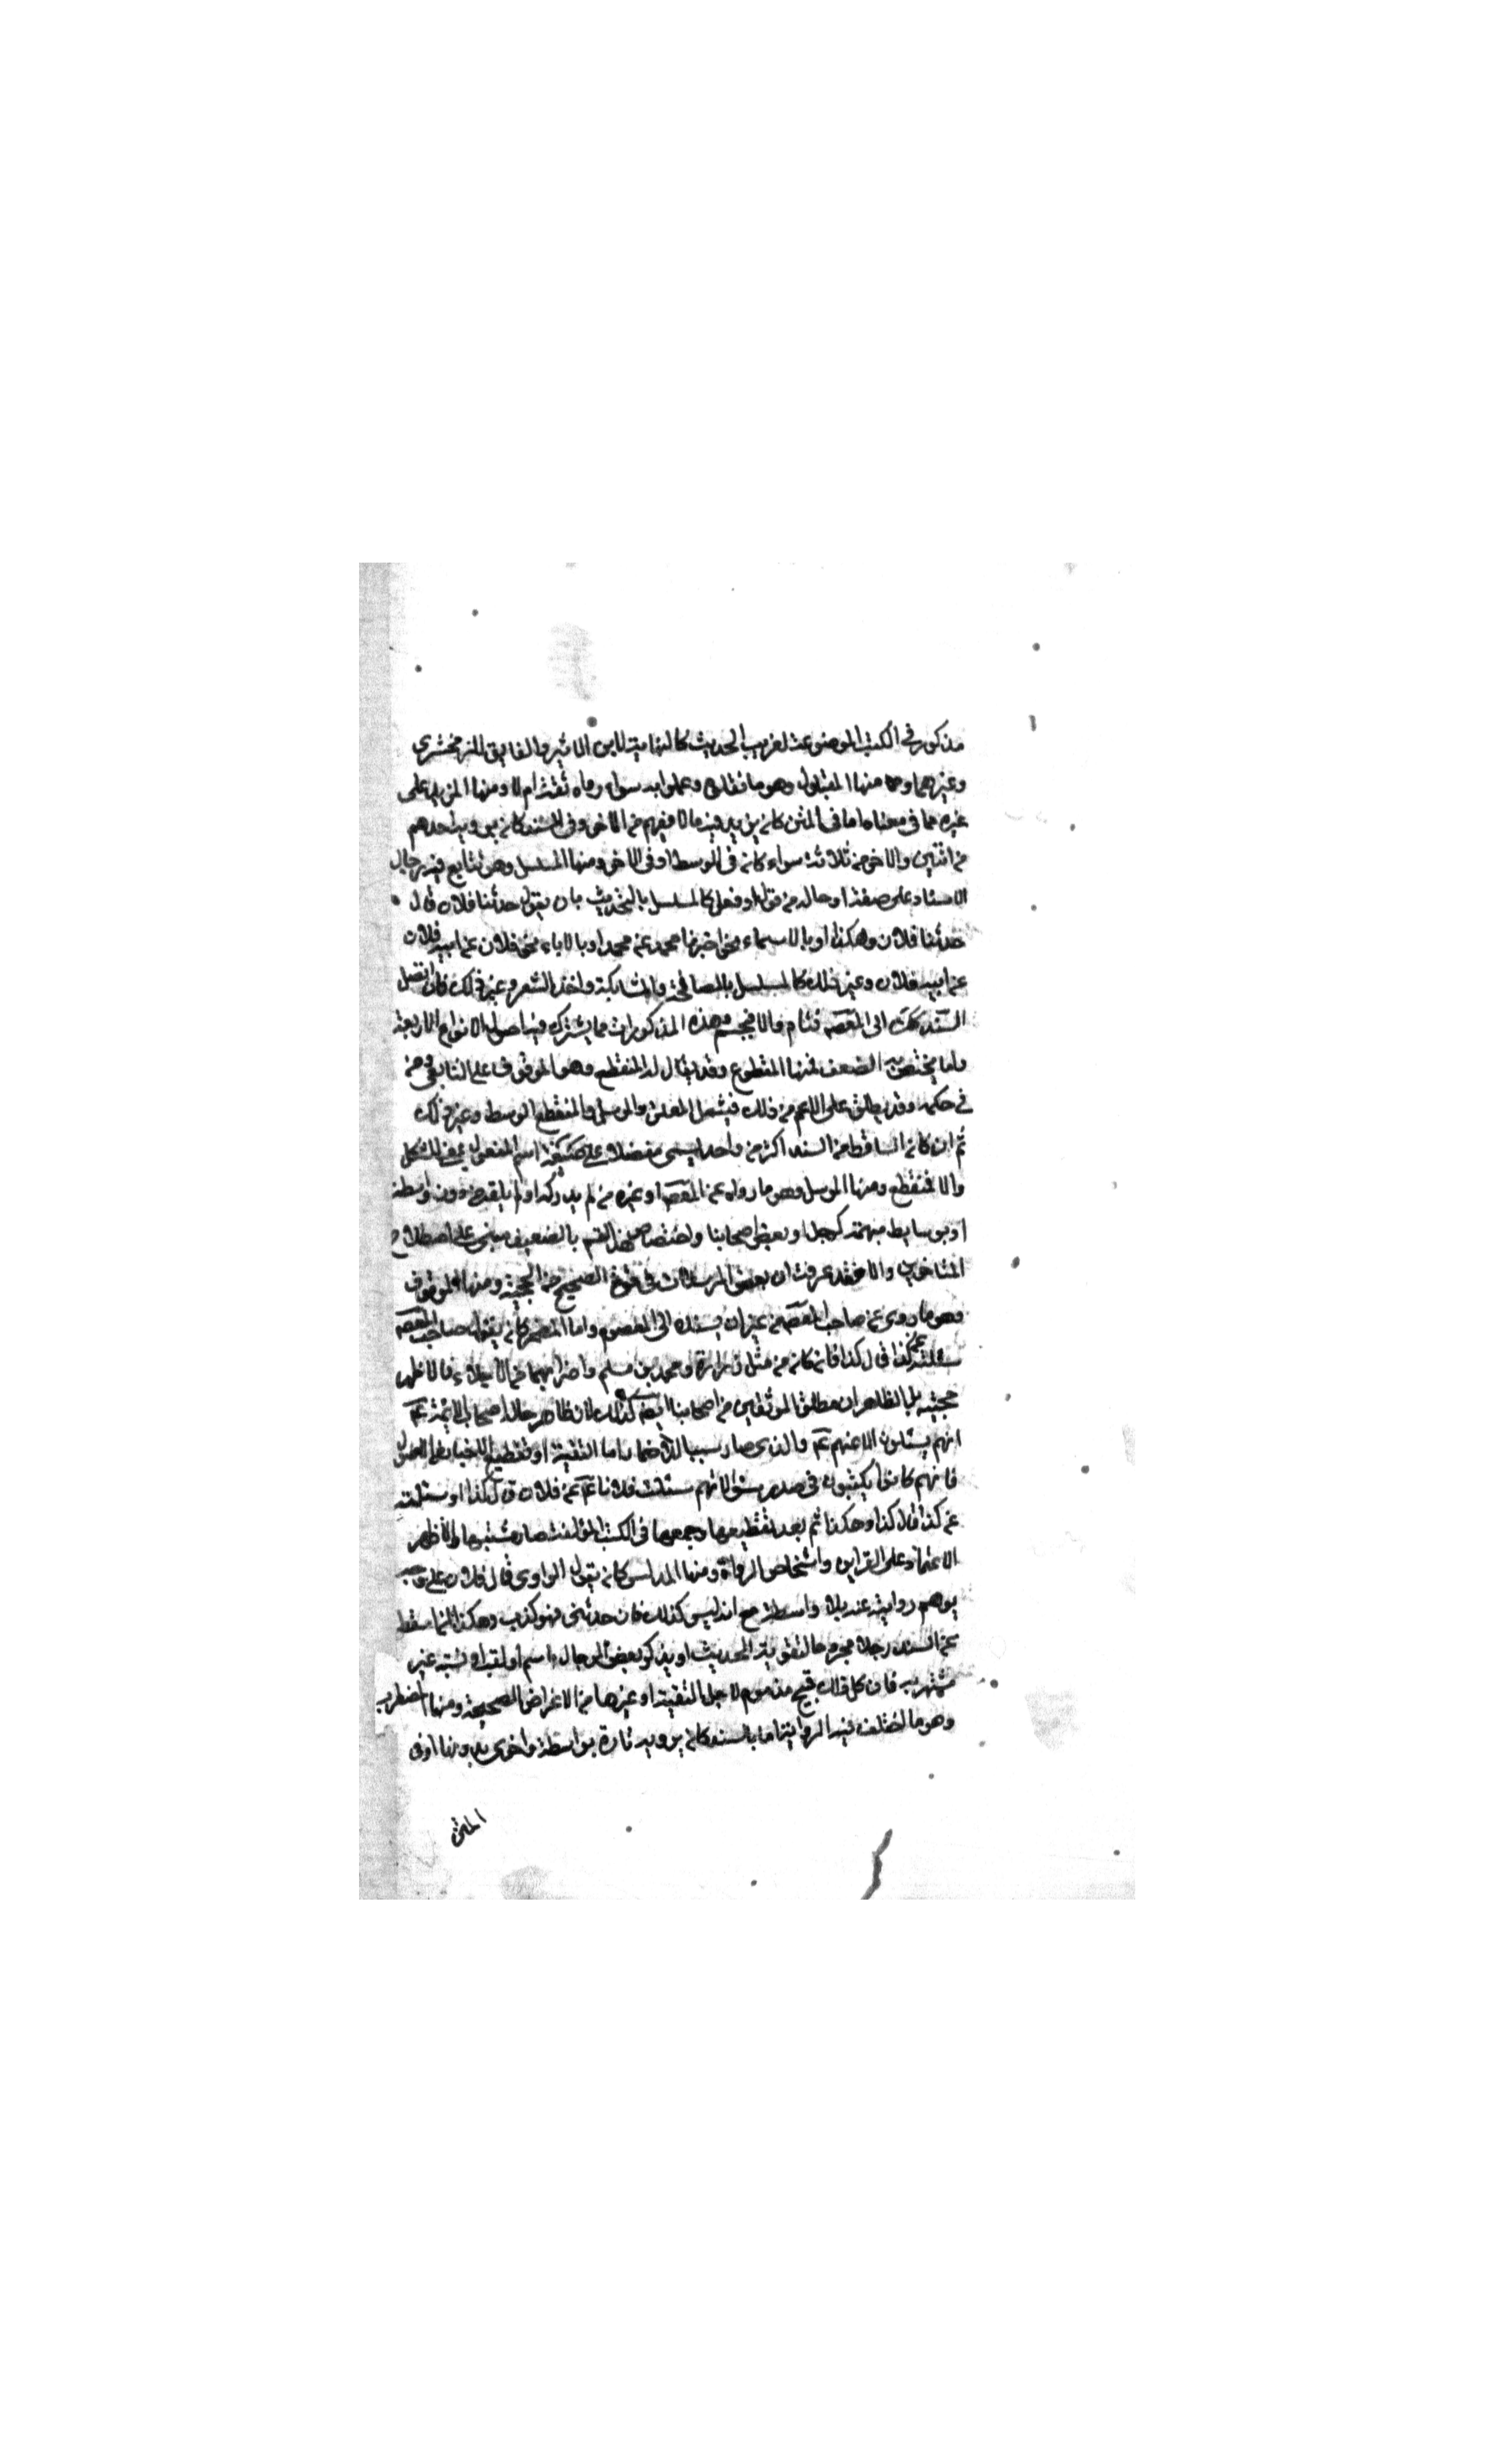 مذكور في الكتب الموضوعة لغريب الحديث كالنهاية لابن الاثير والفايق للزمخشري
وغيرهما ومنها المقبول وهو ما نقلوه وعملوا به سواء رواه ثقة ام لا ومنها المزيد على
غيره مما في معناه اما في المتن كان يزيد فيه ما لا يفهم من الاخر وفي السند كان يرويه احدهم
من اثنين والاخر من ثلاثة سواء كان في الوسط او في الاخر ومنها المسلسل وهو تتابع فيه رجال
الاسناد على صفة او حالة من قول او فعل كالمسلسل بالتحديث بان يقول حدثنا فلان قال
حدثنا فلان وهكذا او بالاسماء نحو اخبرنا محمد عن محمد او بالاباء نحو فلان عن ابيه فلان
عن ابيه فلان وغير ذلك كالمسلسل بالمصافحة والمشابكة واخذ الشعر وغير ذلك فان اتصل
السند كك الى المعصوم فتام والا فبحسبه وهذه المذكورات مما يشترك فيه اصول الانواع الاربعة
واما يختص به الضعف فمنها المقطوع وقد يقال له المنقطع وهو الموقوف على التابعي ومن
في حكمه وقد يطلق على الاعم من ذلك فيشمل المعلق والمرسل والمنقطع الوسط وغير ذلك
ثم ان كان الساقط من السند اكثر من واحد يسمى معضلا على صيغة اسم المفعول
والا فمنقطع ومنها المرسل وهو ما رواه عن المعصوم او غيره من لم يدركه او لم يلقه من دون واسطة
او بوسايط مبهمة كرجل او بعض اصحابنا واختصاص هذا القسم بالضعيف مبني على اصطلاح
المتاخرين والا فقد عرفت ان بعض المرسلات في قوة الصحيح في الحجية ومنها الموقوف
وهو ما روى عن صاحب المعصوم من غير ان يسنده الى المعصوم واما المضمر كان يقول صاحب المعصوم
سئلته عن كذا قال كذا فان كان من مثل زرارة ومحمد بن مسلم واضرابهما من الاجلاء فالاظهر
حجيته بل الظاهر ان مطلق الموثقين من اصحابنا ايضا كذلك لان ظاهر حال اصحاب الائمة عم
انهم لا يسئلون الا عنهم عم والذي صار سببا للاضمار اما التقية او تقطيع الاخبار من الاصول
فانهم كانوا يكتبون في صدر سؤالاتهم سئلت فلانا عم عن فلان قال كذا او سئلته
عن كذا قال كذا وهكذا ثم بعد تقطيعها وجمعها في الكتب المؤلفة صار مشتبها والاظهر
الاعتماد على القراين واشخاص الرواة ومنها المدلس كان يقول الراوي قال فلان على وجه
يوهم روايته عنه بلا واسطة مع انه ليس كذلك فان حدثني فهو كذب وهكذا اذا سقط
عن السند رجلا مجروحا لتقوية الحديث او يذكر بعض الرجال باسم او لقب او نسبة غير
مشتهر به فان كل ذلك قبيح مذموم لاجل التقية او غيرها من الاغراض الصحيحة ومنها المضطرب
وهو ما اختلف فيه الرواية اما بالسند كان يرويه تارة بواسطة واخرى بدونها او في
المتن